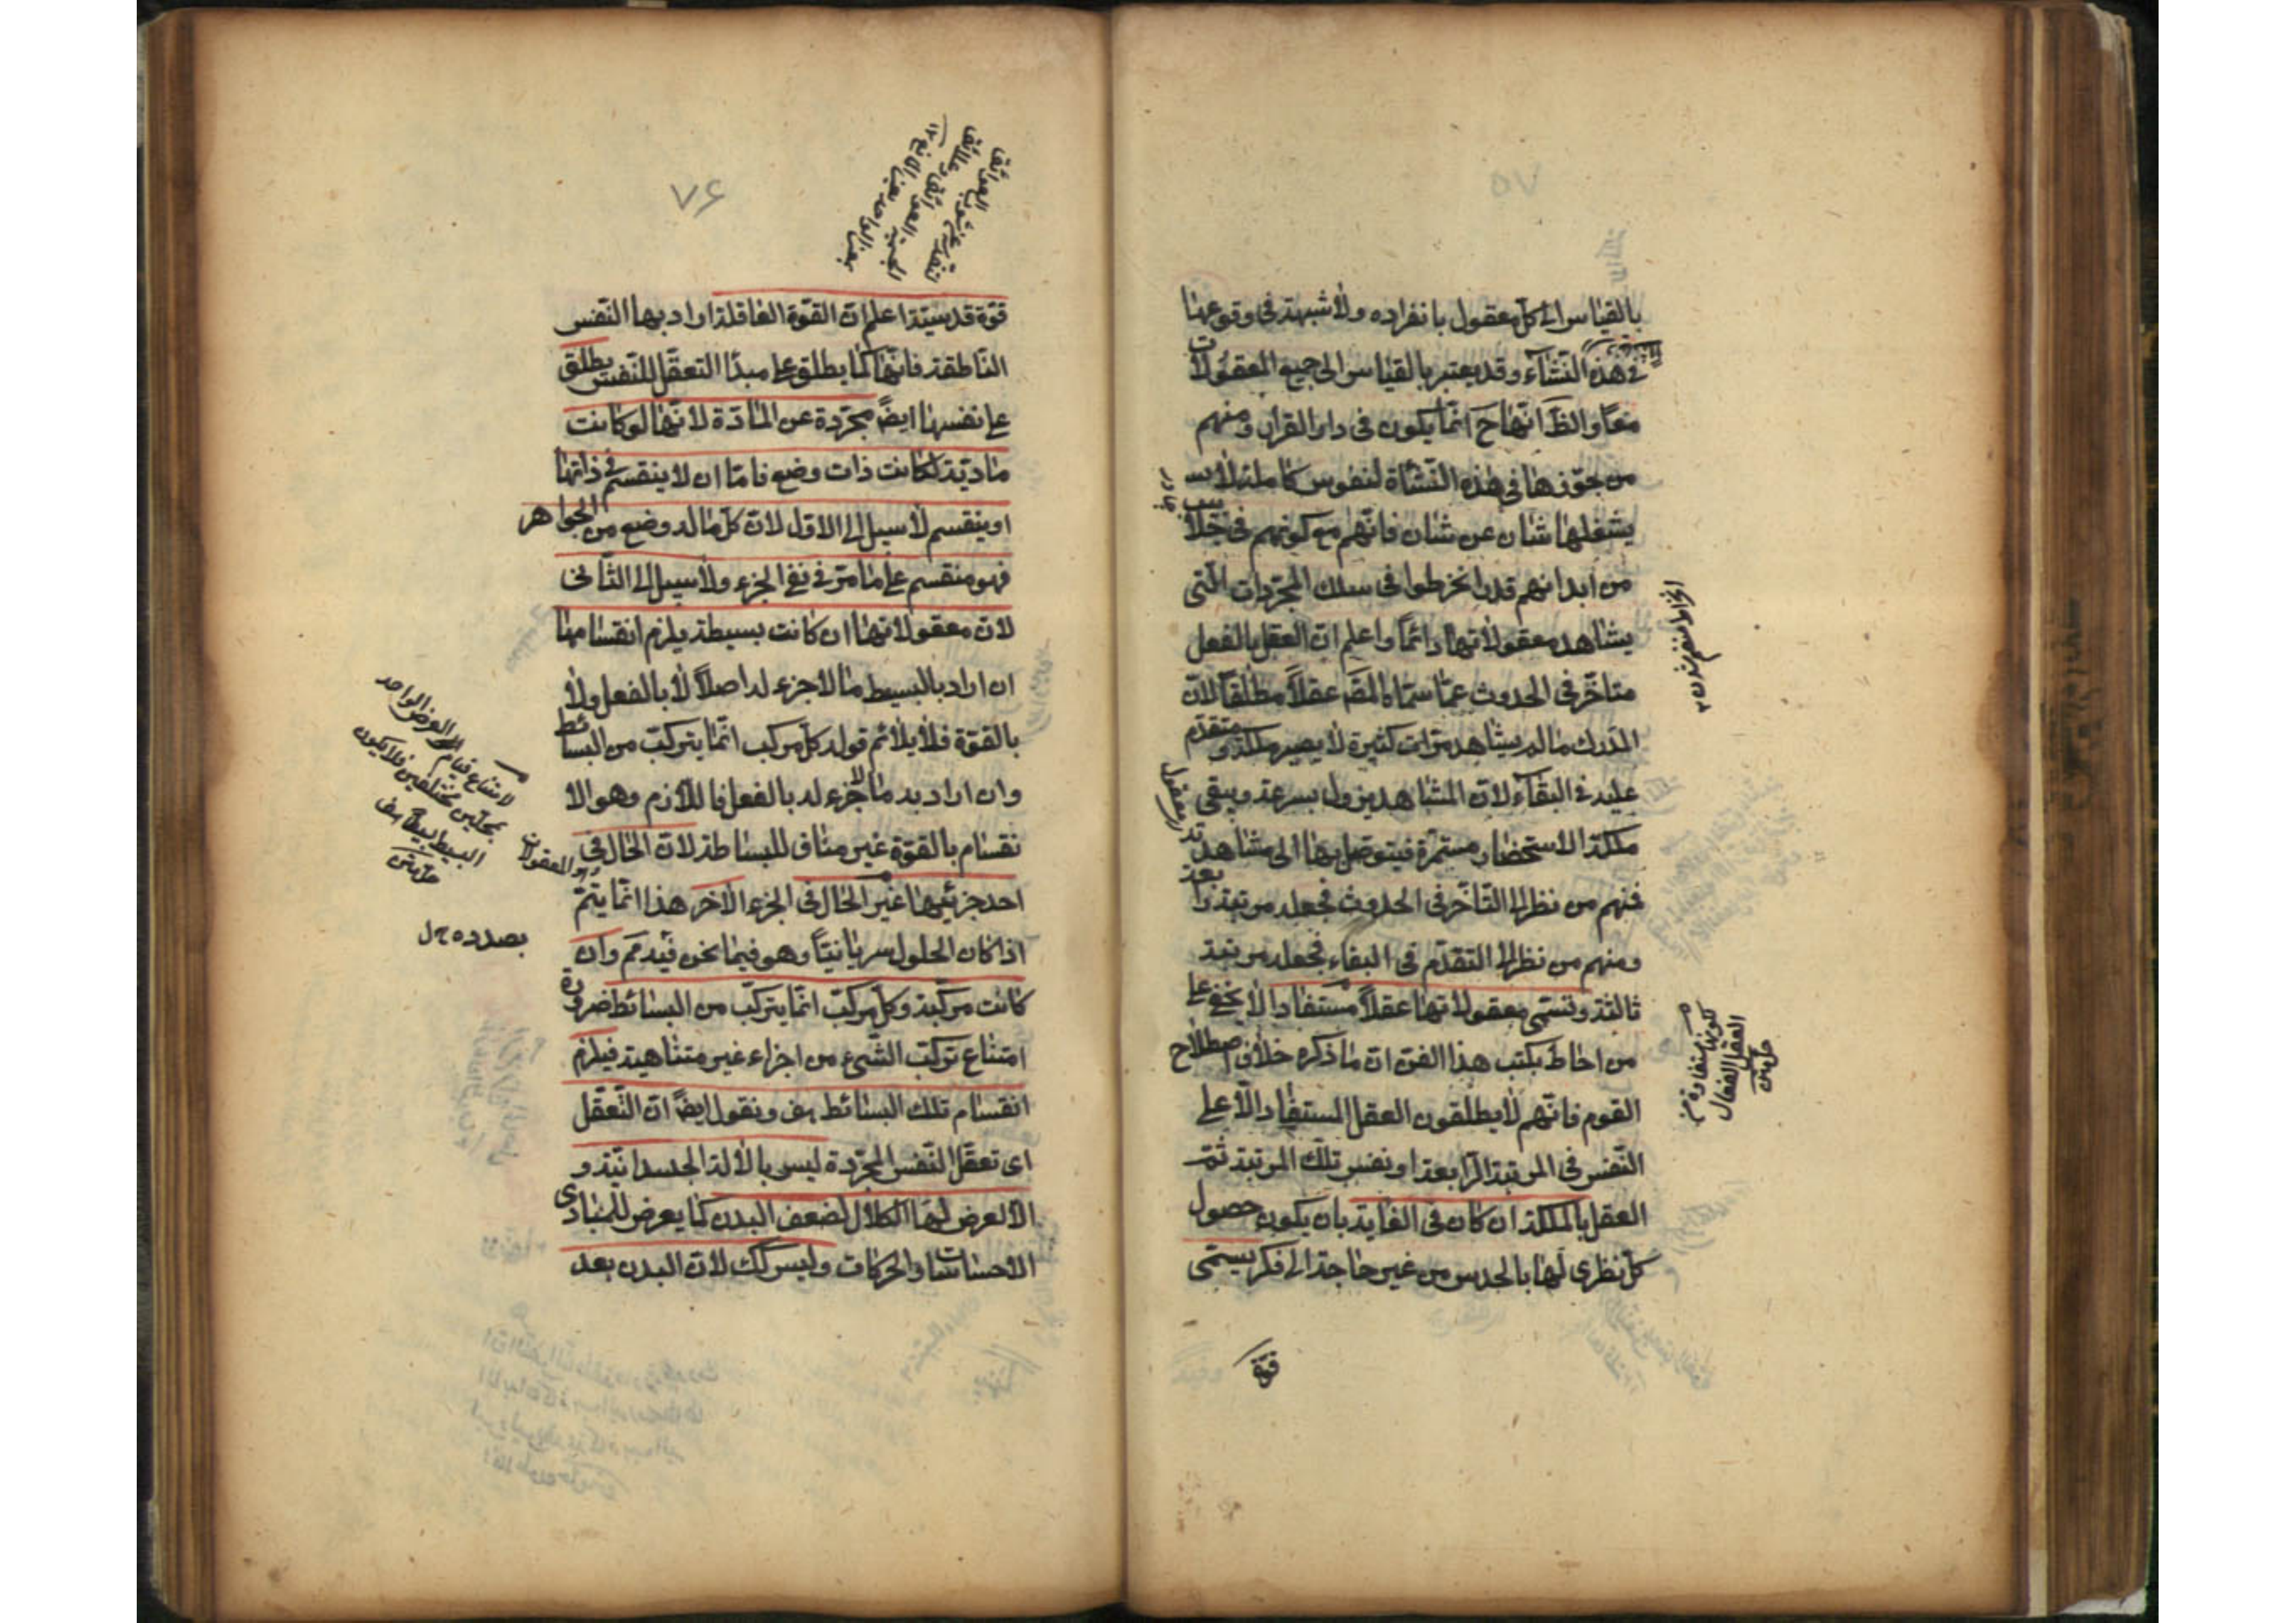 ٧٥
بالقياس الى كل معقول بانفراده ولا شبهة فى وقوعها
فى هذه النشاء وقد يعتبر بالقياس الى جميع المعقولات
معا والظ انهاح انما يكون فى دار القرار ومنهم
من جوزها فى هذه النشأة لنفوس كاملة لا
يشغلها شان عن شان فانهم مع كونهم فى جلابيب
من ابدانهم قد انخرطوا فى سلك المجردات التى
يشاهد معقولاتها دائما واعلم ان العقل بالفعل
متاخر فى الحدوث عما سماه المص عقلا مطلقا لان
المدرك ما لم يشاهد مرات كثيرة لا يصير ملكة ومتقدم
عليه فى البقاء لان المشاهد يزول بسرعة ويبقى
ملكة الاستحضار مستمرة فيتوصل بها الى مشاهدته
فمنهم من نظر الى التاخر فى الحدوث فجعله مرتبة رابعة
ومنهم من نظر الى التقدم فى البقاء فجعله مرتبة
ثالثة وتسمى معقولاتها عقلا مستفادا لا يخفى على
من احاط بكتب هذا الفن ان ما ذكره خلاف اصطلاح
القوم فانهم لا يطلقون العقل المستفاد الا على
النفس فى المرتبة الرابعة او نفس تلك المرتبة ثم
العقل بالملكة ان كان فى الغاية بان يكون حصول
كل نظرى لها بالحدس من غير حاجة الى فكر يسمى
قوة
لكونها مستفادة من
العقل الفعال
٧۶
قوة قدسية اعلم ان القوة العاقلة اراد بها النفس
الناطقة فانها كما يطلق على مبدأ التعقل للنفس يطلق
على نفسها ايضا مجردة عن المادة لانها لو كانت
مادية لكانت ذات وضع فاما ان لا ينقسم فى ذاتها
او ينقسم لا سبيل الى الاول لان كل ما له وضع من الجواهر
فهو منقسم على ما مر فى نفى الجزء ولا سبيل الى الثانى
لان معقولاتها ان كانت بسيطة يلزم انقسامها
ان اراد بالبسيط ما لا جزء له اصلا لا بالفعل ولا
بالقوة فلا يلائم قوله كل مركب انما يتركب من البسائط
وان اراد به ما لا جزء له بالفعل فاللازم وهو الا
نقسام بالقوة غير مناف للبساطة لان الحال فى
احد جزئيها غير الحال فى الجزء الاخر هذا انما يتم
اذا كان الحلول سريانيا وهو فيما نحن فيه مم وان
كانت مركبة وكل مركب انما يتركب من البسائط ضرورة
امتناع تركب الشىء من اجزاء غير متناهية فيلزم
انقسام تلك البسائط هف ونقول ايضا ان التعقل
اى تعقل النفس المجردة ليس بالالة الجسدانية و
الا لعرض لها الكلال لضعف البدن كما يعرض للمبادى
الاحساسات والحركات وليس كك لان البدن بعد
لامتناع قيام العرض الواحد
بمحلين مختلفين فلا يكون